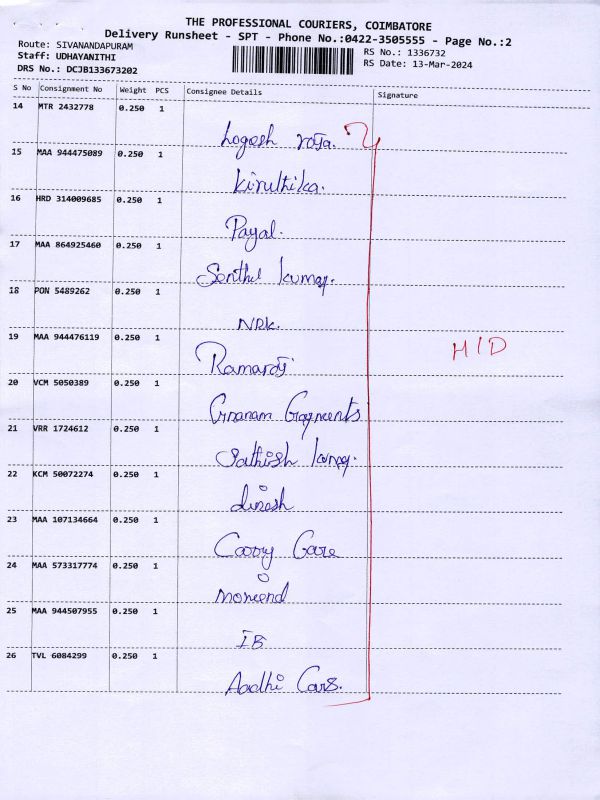 THE PROFESSIONAL COURIERS, COIMBATORE
Delivery Runsheet - SPT - Phone No.:0422-3505555 - Page No.:2
Route: SIVANANDAPURAM
Staff: UDHAYANITHI
DRS No.: DCJB133673202
RS No.: 1336732
RS Date: 13-Mar-2024
S No Consignment No Weight PCS Consignee Details Signature
14 MTR 2432778 0.250 1
Logesh
15 MAA 944475089 0.250 1
Kiruthika.
16 HRD 314009685 0.250 1
Payal.
17 MAA 864925460 0.250 1
Senthil kumar.
18 PON 5489262 0.250 1
NRK.
19 MAA 944476119 0.250 1
H/D
20 VCM 5050389 0.250 1
Gnanam Garments
21 VRR 1724612 0.250 1
Sathish kumar.
22 KCM 50072274 0.250 1
dinesh
23 MAA 107134664 0.250 1
24 MAA 573317774 0.250 1
25 MAA 944507955 0.250 1
IB
26 TVL 6084299 0.250 1
Aadhi Cars.